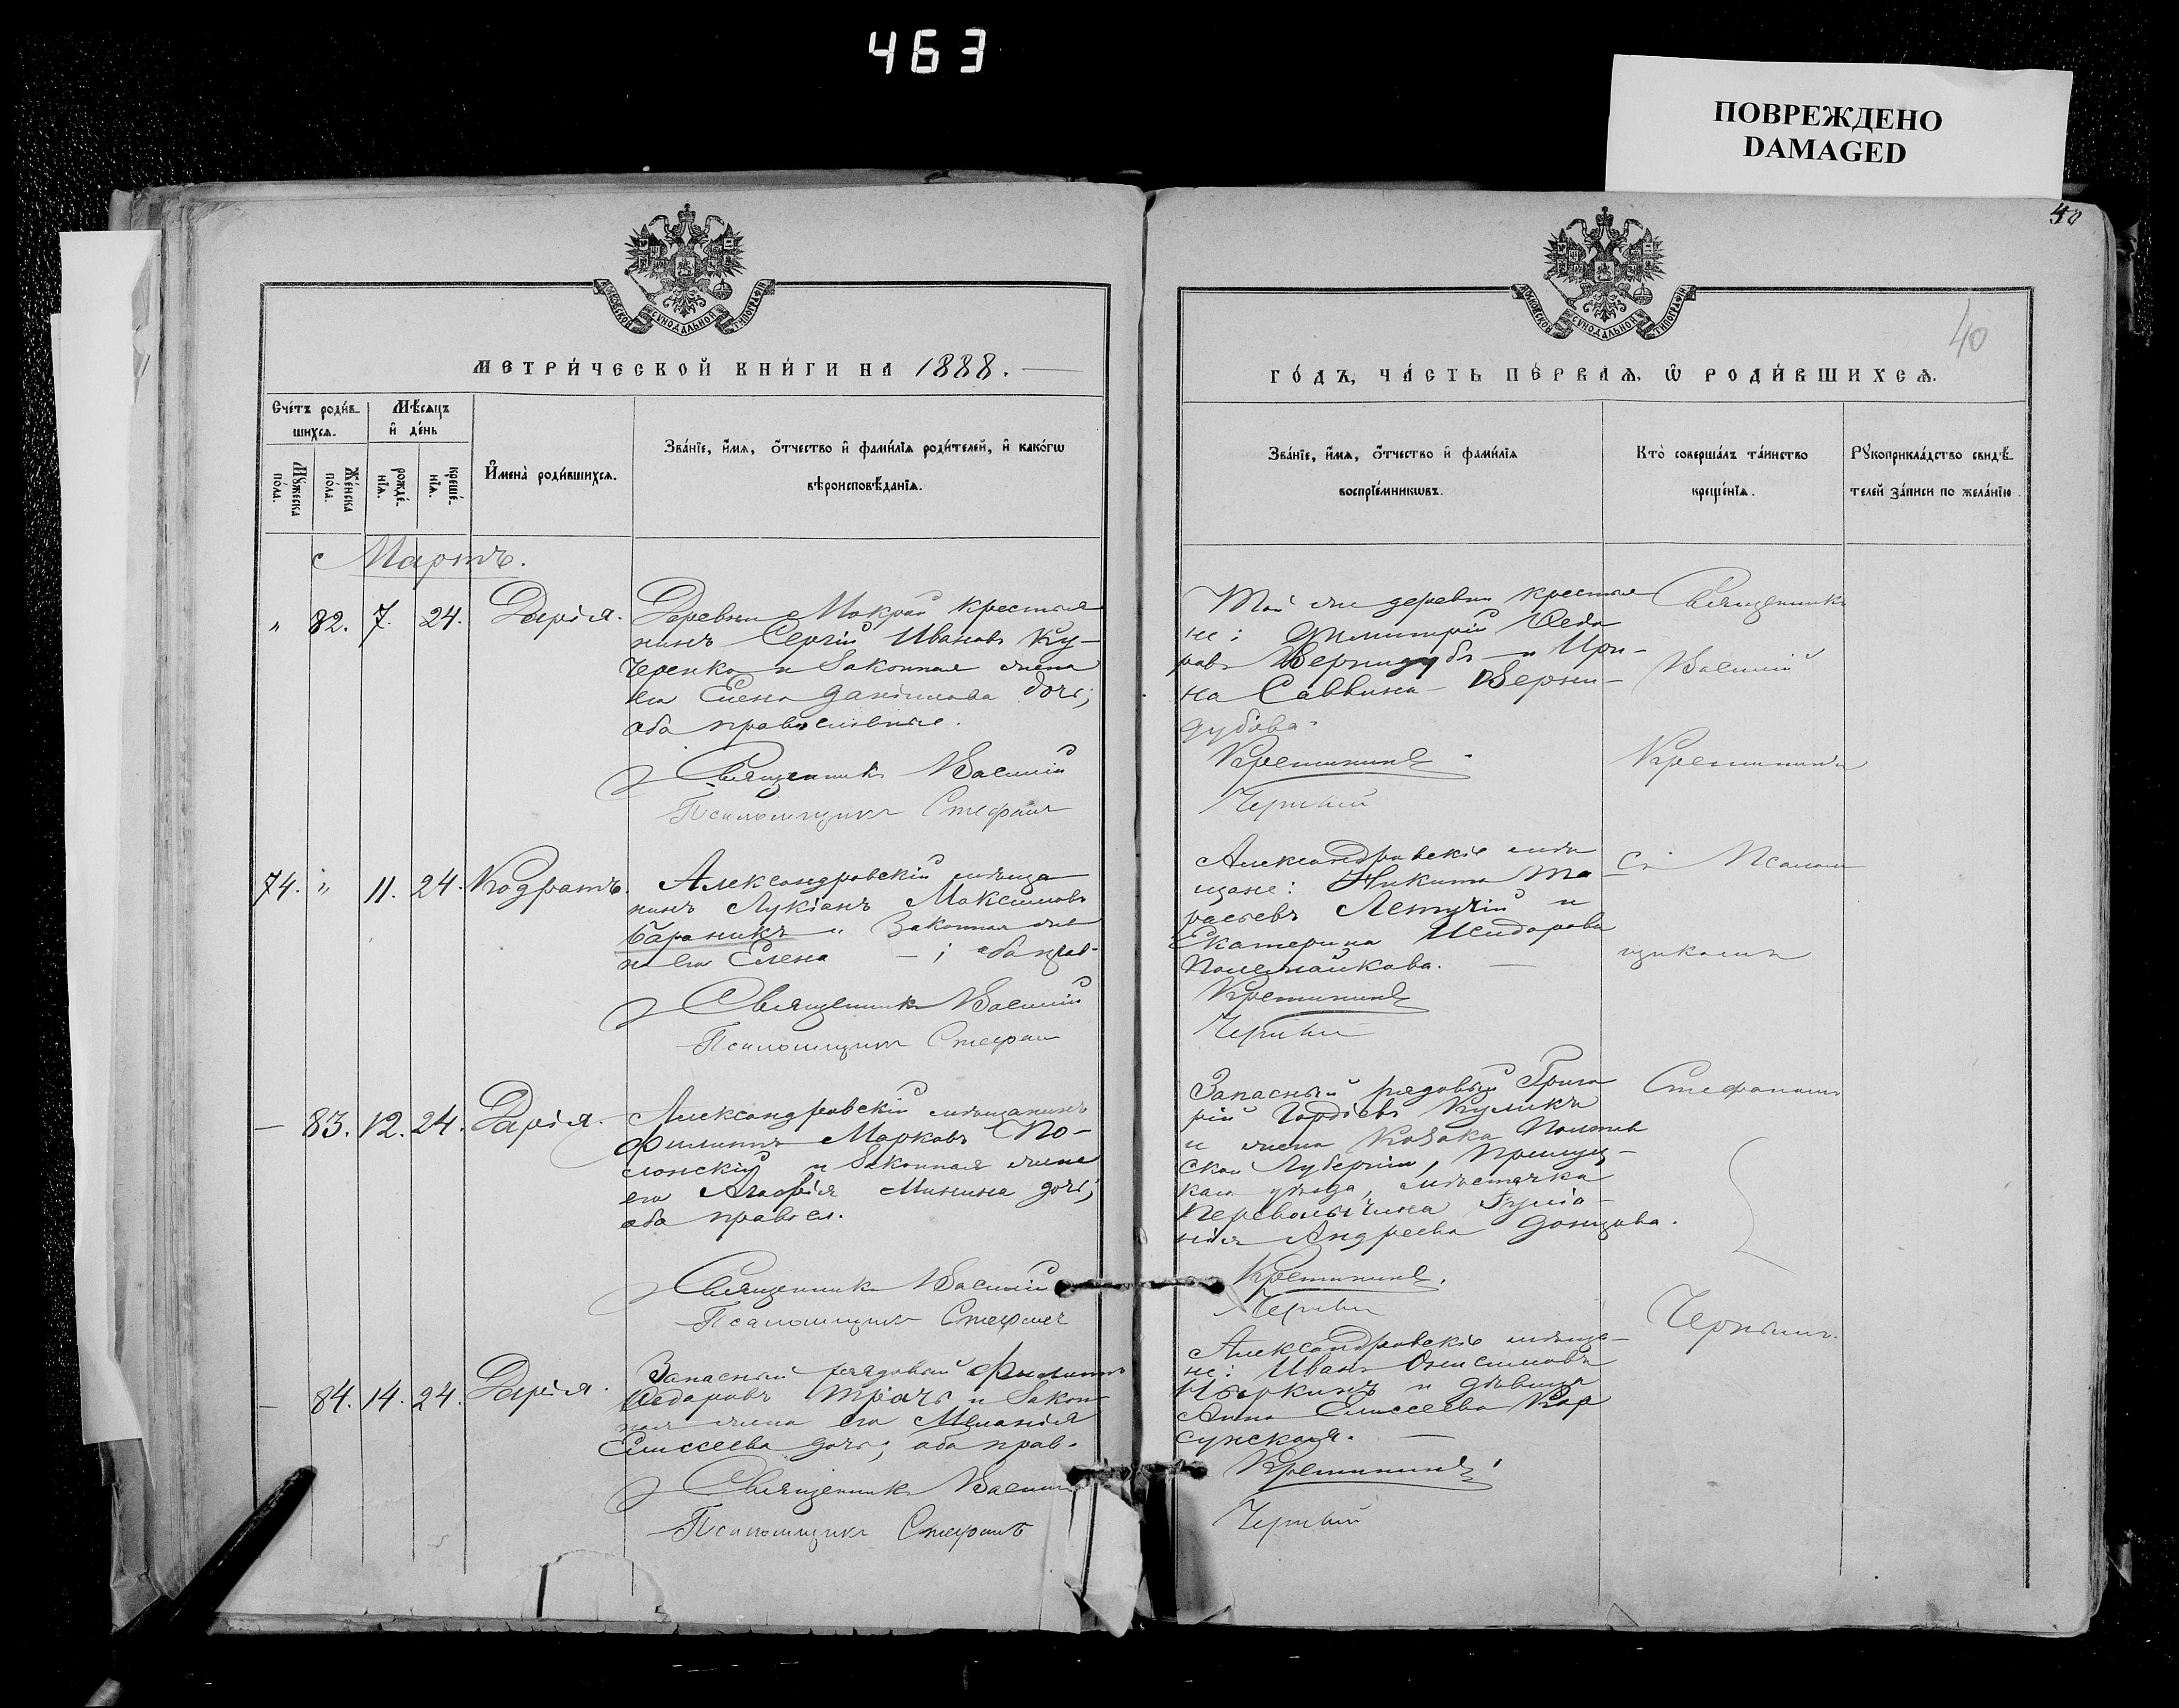 463
ПОВРЕЖДЕНО
DAMAGED
40
40
МОСКОВСКОЙ СУНОДАЛЬНОЙ ТИПОГРАФІИ
МОСКОВСКОЙ СУНОДАЛЬНОЙ ТИПОГРАФІИ
МЕТРИ́ЧЕСКОЙ КНИ́ГИ НА 1888.
ГО́ДЪ, ЧА́СТЬ ПЕ́РВАѦ, Ѡ҆ РОДИ́ВШИХСѦ.
Сче́тъ роди́в-
шихсѧ.
Мꙋ́жеска по́ла.
Же́нска по́ла.
Мѣ́сѧцъ
и҆ де́нь
рожде́-
нїѧ.
креще́-
нїѧ.
И҆мена̀ роди́вшихсѧ.
Зва́нїе, и҆́мѧ, ѻ҆́тчество и҆ фами́лїѧ роди́телей, и҆ како́гѡ
вѣроисповѣ́данїѧ.
Зва́нїе, и҆́мѧ, ѻ҆́тчество и҆ фами́лїѧ
воспрїе́мникѡвъ.
Кто̀ соверша́лъ та́инство
креще́нїѧ.
Рꙋкоприкла́дство свидѣ́-
телей за́писи по жела́нїю
Мартъ.
" 82. 7. 24. Дарія.
Деревни Мокрой крестья
нинъ Сергій Ивановъ Ку-
черенко и законная жена
его Елена Даніилова дочь;
оба православные.
Священникъ Василій
Псаломщикъ Стефанъ
Той же деревни крестья
не: Димитрій Ѳедо
ровъ Вернидубъ и Ири-
на Саввина Верни-
дубова
Кретининъ
Черный
Священникъ
Василій
Кретининъ
74. " 11. 24. Кодратъ.
Александровскій мѣща
нинъ Лукіанъ Максимовъ
Бараникъ и законная же
на его Елена — ; оба прав.
Священникъ Василій
Псаломщикъ Стефанъ
Александровскіе мѣ
щане: Никита Та
расьевъ Летучій и
Екатерина Исидорова
Кретининъ
Черный
съ Псалом
щикомъ
— 83. 12. 24. Дарія.
Александровскій мѣщанинъ
Филиппъ Марковъ По-
лонскій и законная жена
его Агафія Минина дочь;
оба правосл.
Священникъ Василій
Псаломщикъ Стефанъ
Запасный рядовый Григо
рій Гордіевъ Куликъ
и жена козака Полтав
ской Губерніи, Прилуц-
каго уѣзда, мѣстечка
Переволочина
Андреева Донцова.
Кретининъ.
Черный
Стефаномъ
Чернымъ.
— 84. 14. 24. Дарія.
Запасный рядовый Филиппъ
Ѳедоровъ Трачъ и закон
ная жена его Меланія
Елиссеева дочь; оба прав.
Священникъ Василій
Псаломщикъ Стефанъ
Александровскіе мѣща-
не: Иванъ Онисимовъ
и дѣвица
Анна Елиссеева Кор
сунская.
Кретининъ
Черный